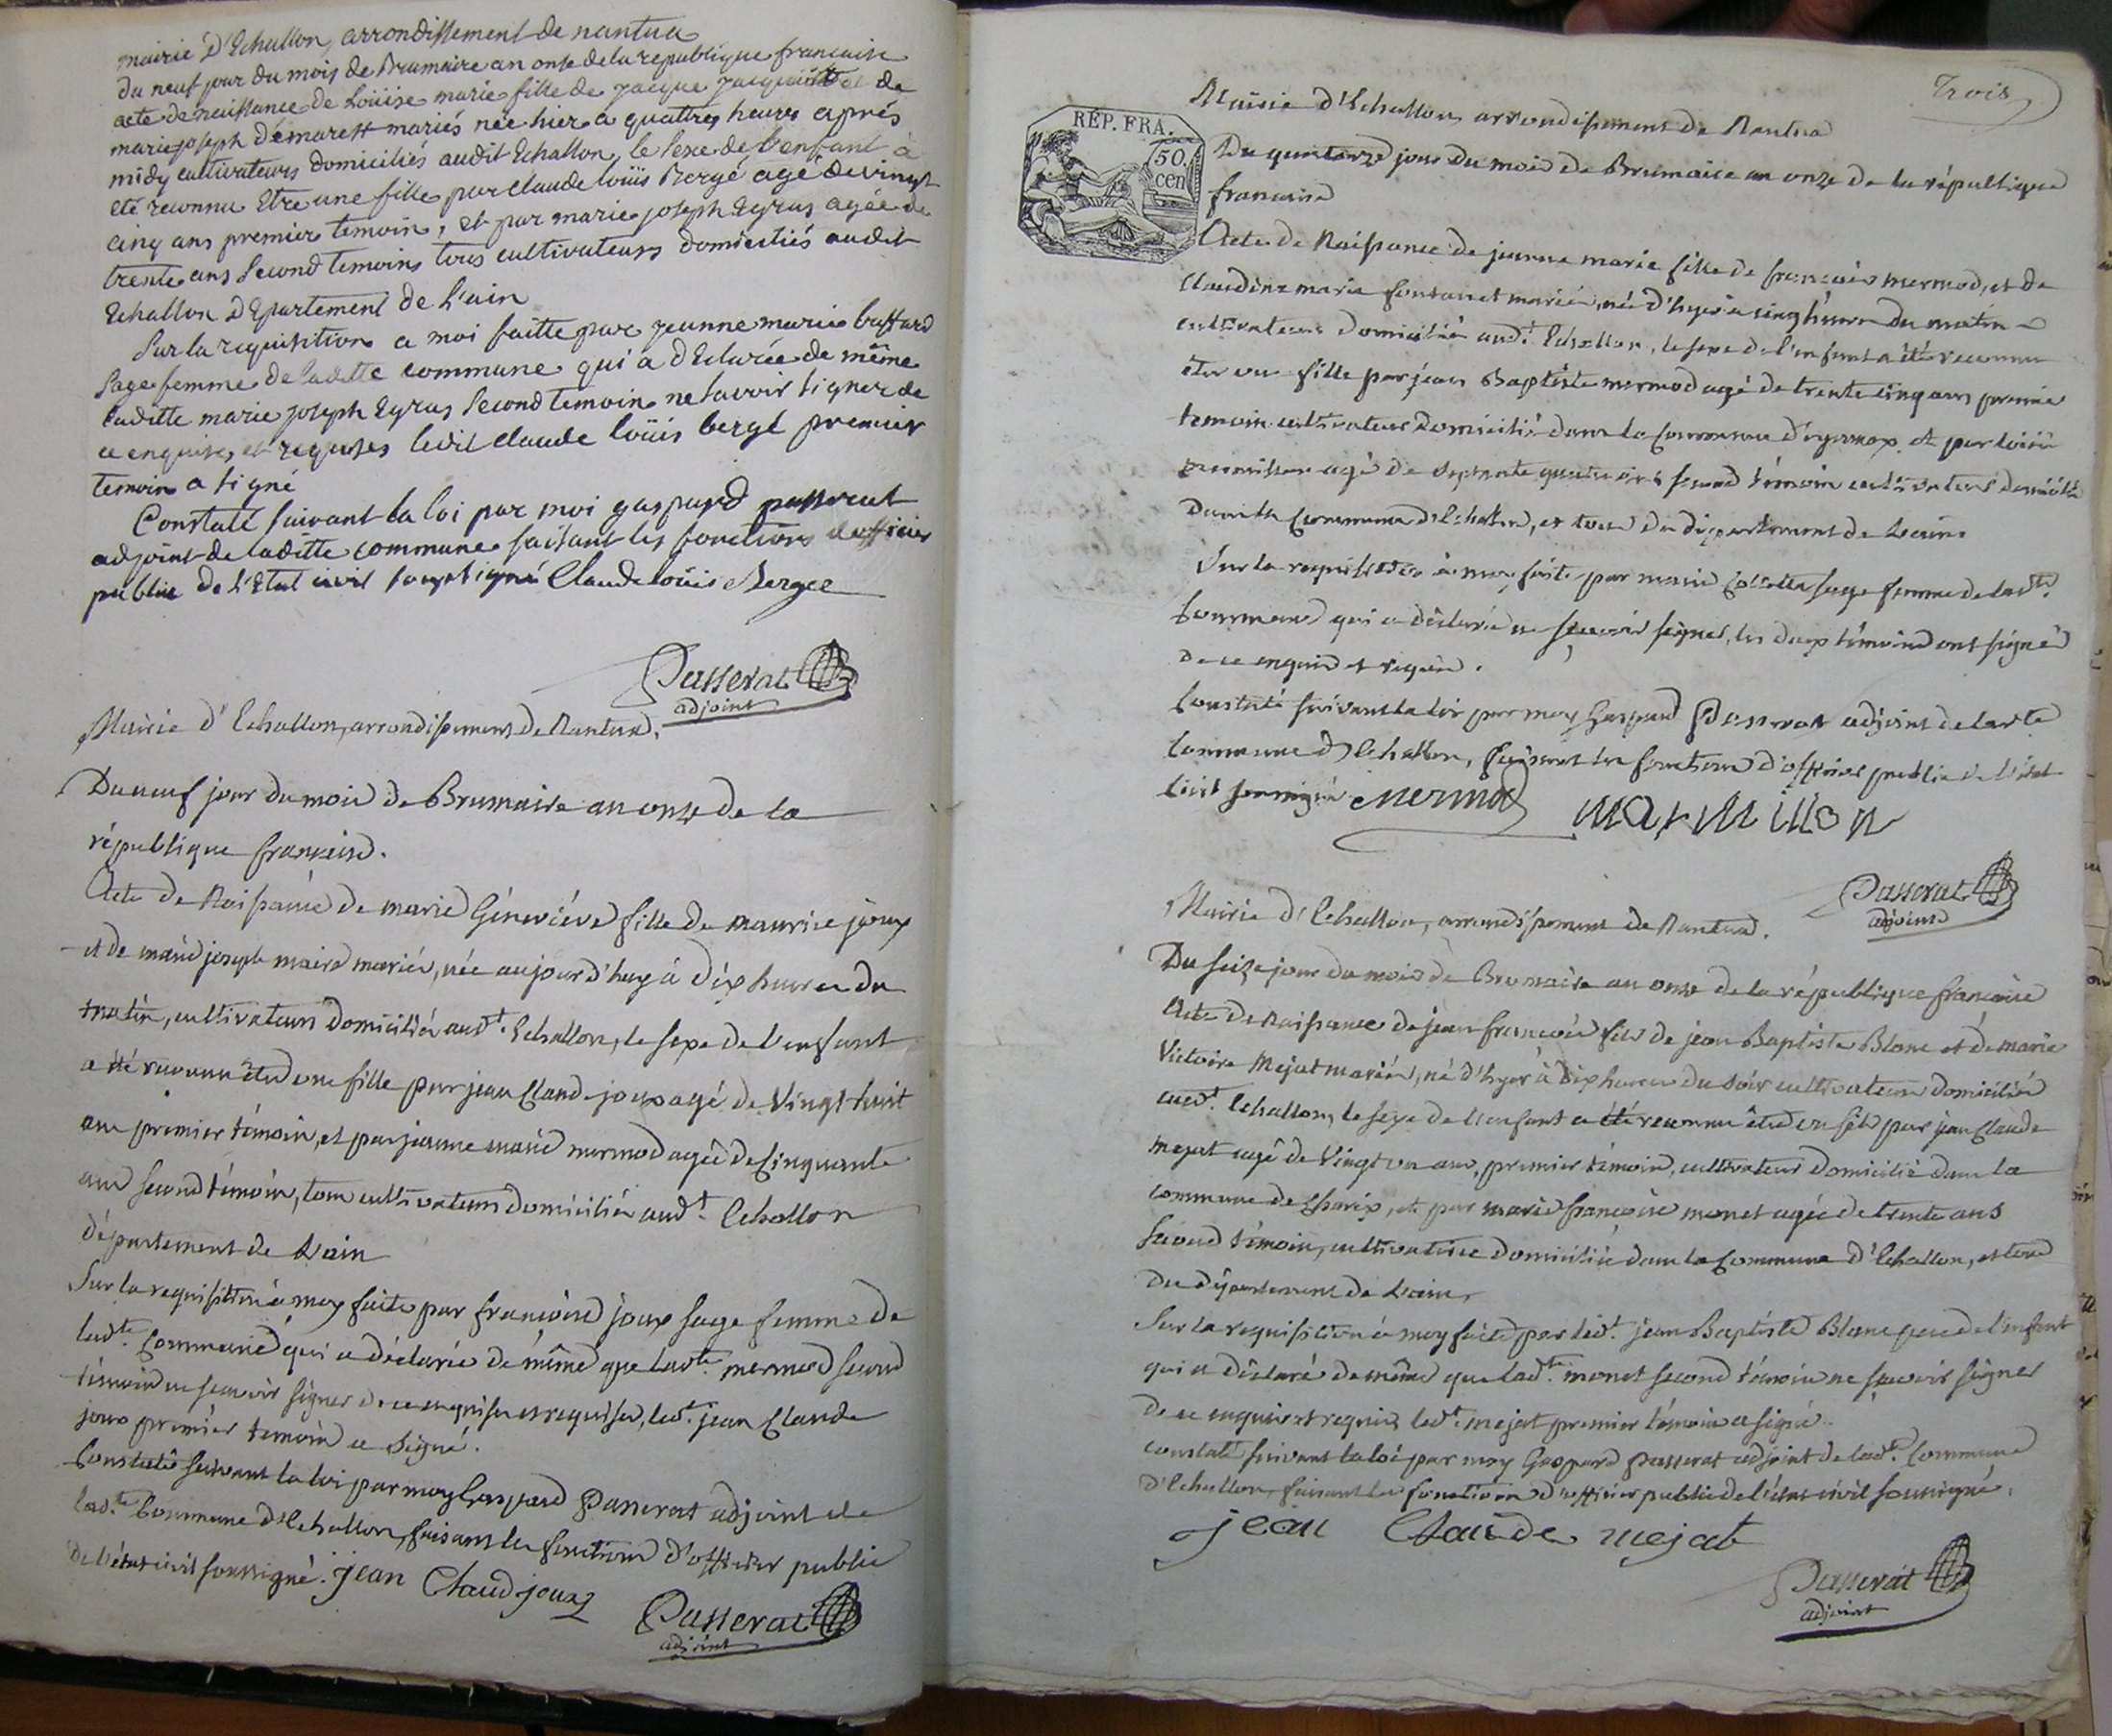 mairie d'Echallon, arrondissement de nantua
du neuf jour du mois de Brumaire an onse de la republique francaise
acte de naissance de Loüise marie fille de jacque jacquiot et de
marie joseph démarest mariés née hier a quattres heures aprés
midy cultivateurs domiciliés audit Echallon, le sexe de l'enfant à
eté reconnu Etre une fille, par claude loüis Bergé agé de vingt
cinq ans premier temoin, et par marie joseph Egras agée de
trente ans second temoins tous cultivateurs domiciliés audit
Echallon dEpartement de l'ain
Sur la requisition a moi faitte par jeanne marie buffard
sage femme de laditte commune qui a dEclarée de même
laditte marie joseph Egras second temoin ne savoir signer de
ce enquises et requises ledit claude loüis bergé premier
temoin a signé
Constaté suivant la loi par moi gaspard passerat
adjoint de laditte commune faisant les fonctions d'officier
public de l'Etat civil soussigné Claude loüis Bergee
Passerat
adjoint
Mairie d'Echallon, arrondissement de Nantua.
Du neuf jour du mois de Brumaire an onze de la
république française.
Acte de Naissance de marie Géneviéve fille de maurice joux
et de marie joseph maire mariés, née aujourd'huy à dix heures du
matin, cultivateurs domiciliés audt. Echallon, le sexe de l'enfant
a été reconnu être une fille par jean Claude joux agé de Vingt huit
ans premier témoin, et par jeanne marie mermod agée de Cinquante
ans second témoin, tous cultivateurs domiciliés audt. Echallon
département de L'ain
Sur la requisition à moy faite par françoise joux sage femme de
ladte. Commune qui a déclarée de même que ladte. mermod second
témoin ne sçavoir signer de ce enquises et requises, ledt. jean Claude
joux premier temoin a signé.
Constaté suivant la loi par moy Gaspard Passerat adjoint de
ladte. Commune d'Echallon, faisant les fonctions d'officier public
de l'état civil soussigné. jean Claud joux
Passerat
adjoint
Trois
RÉP. FRA.
50.
cen
Mairie d'Echallon, arrondissement de Nantua
Du quatorze jour du mois de Brumaire an onze de la république
française
Acte de Naissance de jeanne marie fille de françois mermod, et de
Claudine marie fontanet mariés, née d'hyer à cinq heures du matin
cultivateurs domiciliés audt. Echallon, le sexe de l'enfant a été reconnu
être une fille par jean Baptiste mermod agé de trente cinq ans premier
temoin cultivateur domicilié dans la Commune d'oyonnax, et par loüis
marmillon agé de septante quatre ans second témoin cultivateur domicilié
dans la Commune d'Echallon, et tous du département de L'ain.
Sur la requisition à moy faite par marie Colletta sage femme de ladte.
Commune qui a déclarée ne sçavoir signer, les deux témoins ont signé
de ce enquis et requis.
Constaté suivant la loi par moy Gaspard Passerat adjoint de ladte
Commune d'Echallon, faisant les fonctions d'officier public de l'état
Civil soussigné mermod marmillon
Passerat
adjoint
Mairie d'Echallon, arrondissement de Nantua.
Du seize jour du mois de Brumaire an onze de la république française
Acte de Naissance de jean françois fils de jean Baptiste Blanc et de marie
Victoire Mejat mariés, né d'hyer à dix heures du soir cultivateurs domiciliés
audt. Echallon, le sexe de l'enfant a été reconnu être un fils par jean Claude
mejat agé de Vingt un ans, premier témoin, cultivateur domicilié dans la
commune de Charix, et par marie françoise monet agée de trente ans
second témoin, cultivatrice domiciliée dans la Commune d'Echallon, et tous
du département de L'ain.
Sur la requisition à moy faite par ledt. jean Baptiste Blanc pere de l'enfant
qui a déclaré de même que ladte. monet second témoin ne sçavoir signer
de ce enquis et requis, ledt. mejat premier témoin a signé.
constaté suivant la loi par moy Gaspard Passerat adjoint de ladte. Commune
d'Echallon, faisant les fonctions d'officier public de l'état civil soussigné.
jean Claude mejat
Passerat
adjoint